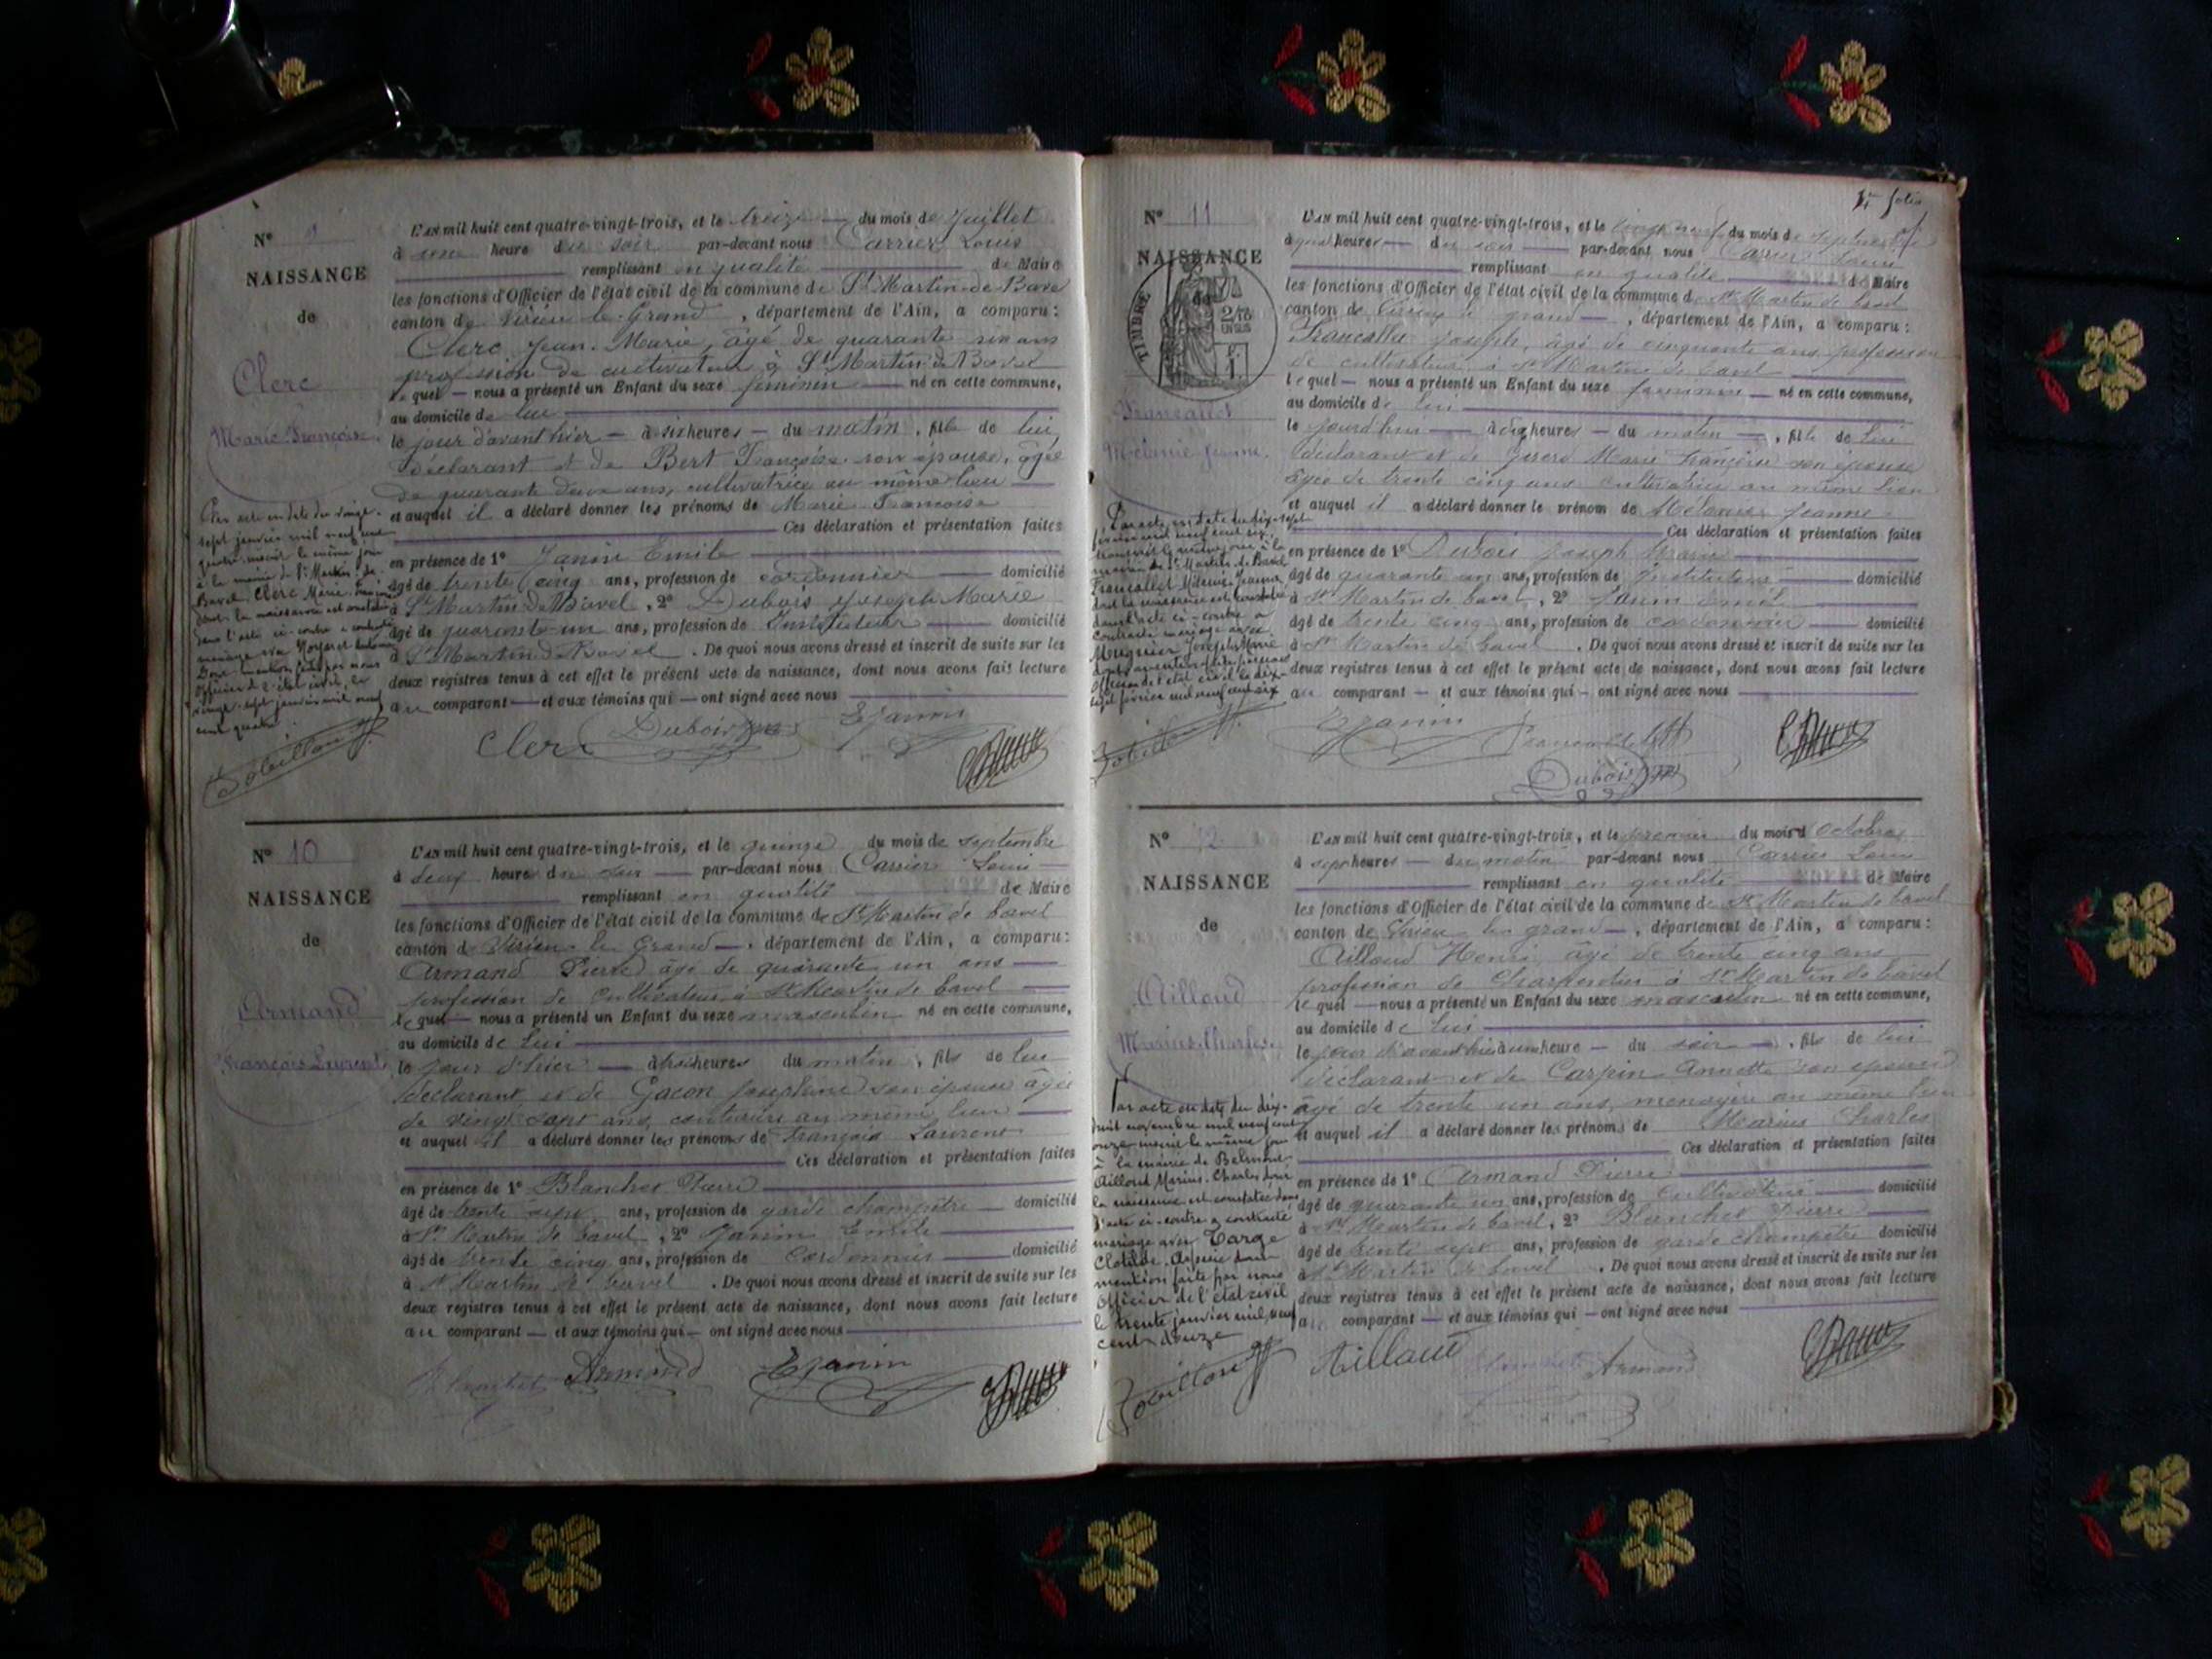 N° 9
NAISSANCE
de
Clerc
Marie Françoise
L'an mil huit cent quatre-vingt-trois, et le treize du mois de Juillet
à heure du soir par-devant nous Carrier Louis
remplissant en qualité de Maire
les fonctions d'Officier de l'état civil de la commune de St Martin-de-Bavel
canton de Virieu le Grand, département de l'Ain, a comparu:
Clerc Jean-Marie, âgé de quarante six ans
profession de cultivateur à St Martin-de-Bavel
lequel nous a présenté un Enfant du sexe féminin né en cette commune,
au domicile de lui
le jour d'avant hier à six heures du matin, fille de lui
déclarant et de Bert Françoise son épouse, âgée
de quarante deux ans, cultivatrice au même lieu
et auquel il a déclaré donner les prénoms de Marie Françoise
Ces déclaration et présentation faites
en présence de 1° Janin Emile
âgé de trente cinq ans, profession de cordonnier domicilié
à St Martin de Bavel, 2° Dubois Joseph Marie
âgé de quarante-un ans, profession de Instituteur domicilié
à St Martin de Bavel. De quoi nous avons dressé et inscrit de suite sur les
deux registres tenus à cet effet le présent acte de naissance, dont nous avons fait lecture
au comparant et aux témoins qui ont signé avec nous
Par acte en date du vingt-
sept janvier mil neuf cent
quatre inscrit le même jour
à la mairie de St Martin de
Bavel Clerc Marie Françoise
dont la naissance est constatée
dans l'acte ci-contre a contracté
mariage avec
Dont mention faite par nous
officier de l'état civil, le
vingt-sept janvier mil neuf
cent quatre
Clerc Dubois EJanin
N° 10
NAISSANCE
de
Armand
François Laurent
L'an mil huit cent quatre-vingt-trois, et le quinze du mois de septembre
à deux heure du soir par-devant nous Carrier Louis
remplissant en qualité de Maire
les fonctions d'Officier de l'état civil de la commune de St Martin de bavel
canton de Virieu le Grand, département de l'Ain, a comparu:
Armand Pierre âgé de quarante un ans
profession de Cultivateur à St Martin de bavel
lequel nous a présenté un Enfant du sexe masculin né en cette commune,
au domicile de lui
le jour d'hier à heures du matin, fils de lui
déclarant et de Gacon Joséphine son épouse âgée
de vingt sept ans, couturière au même lieu
et auquel il a déclaré donner les prénoms de françois Laurent
Ces déclaration et présentation faites
en présence de 1° Blanchet Pierre
âgé de trente sept ans, profession de garde champêtre domicilié
à St Martin de bavel, 2° Janin Emile
âgé de trente cinq ans, profession de Cordonnier domicilié
à St Martin de bavel. De quoi nous avons dressé et inscrit de suite sur les
deux registres tenus à cet effet le présent acte de naissance, dont nous avons fait lecture
au comparant et aux témoins qui ont signé avec nous
Blanchet Armand EJanin
2e folio
N° 11
NAISSANCE
de
TIMBRE
Francallet
Mélanie Jeanne
L'an mil huit cent quatre-vingt-trois, et le vingt neuf du mois de septembre
à heures du soir par-devant nous Carrier Louis
remplissant en qualité de Maire
les fonctions d'Officier de l'état civil de la commune de St Martin de bavel
canton de Virieu le grand, département de l'Ain, a comparu:
Francallet Joseph, âgé de cinquante ans profession
de cultivateur à St Martin de bavel
lequel nous a présenté un Enfant du sexe féminin né en cette commune,
au domicile de lui
le jourd'hui à heures du matin, fille de lui
déclarant et de Marie Françoise son épouse
âgée de trente cinq ans cultivatrice au même lieu
et auquel il a déclaré donner le prénom de Mélanie Jeanne
Ces déclaration et présentation faites
en présence de 1° Dubois Joseph Marie
âgé de quarante un ans, profession de Instituteur domicilié
à St Martin de bavel, 2° Janin Emile
âgé de trente cinq ans, profession de cordonnier domicilié
à St Martin de bavel. De quoi nous avons dressé et inscrit de suite sur les
deux registres tenus à cet effet le présent acte de naissance, dont nous avons fait lecture
au comparant et aux témoins qui ont signé avec nous
Par acte en date du dix-sept
février mil neuf cent six
transcrit le même jour à la
mairie de St Martin de Bavel
Francallet Mélanie Jeanne
dont la naissance est constatée
dans l'acte ci-contre a
contracté mariage avec
Mugnier Joseph Marie
dont mention faite par nous
Officier de l'état civil le dix-
sept février mil neuf cent six
EJanin Francallet
Dubois
N° 12
NAISSANCE
de
Ailloud
Marius Charles
L'an mil huit cent quatre-vingt-trois, et le premier du mois d'Octobre
à sept heures du matin par-devant nous Carrier Louis
remplissant en qualité de Maire
les fonctions d'Officier de l'état civil de la commune de St Martin de bavel
canton de Virieu le grand, département de l'Ain, a comparu:
Ailloud Henri, âgé de trente cinq ans
profession de Charpentier à St Martin de bavel
lequel nous a présenté un Enfant du sexe masculin né en cette commune,
au domicile de lui
le jour d'avant hier à une heure du soir, fils de lui
déclarant et de Carpin Annette son épouse
âgé de trente un ans, menagère au même lieu
et auquel il a déclaré donner les prénoms de Marius Charles
Ces déclaration et présentation faites
en présence de 1° Armand Pierre
âgé de quarante un ans, profession de Cultivateur domicilié
à St Martin de bavel, 2° Blanchet Pierre
âgé de trente sept ans, profession de garde champêtre domicilié
à St Martin de bavel. De quoi nous avons dressé et inscrit de suite sur les
deux registres tenus à cet effet le présent acte de naissance, dont nous avons fait lecture
au comparant et aux témoins qui ont signé avec nous
Par acte en date du dix-
huit novembre mil neuf cent
onze inscrit le même jour
à la mairie de Belmont
Ailloud Marius Charles dont
la naissance est constatée dans
l'acte ci-contre a contracté
mariage avec Targe
Clotilde Aspasie dont
mention faite par nous
Officier de l'état civil
le trente janvier mil neuf
cent douze
Aillaud Blanchet Armand